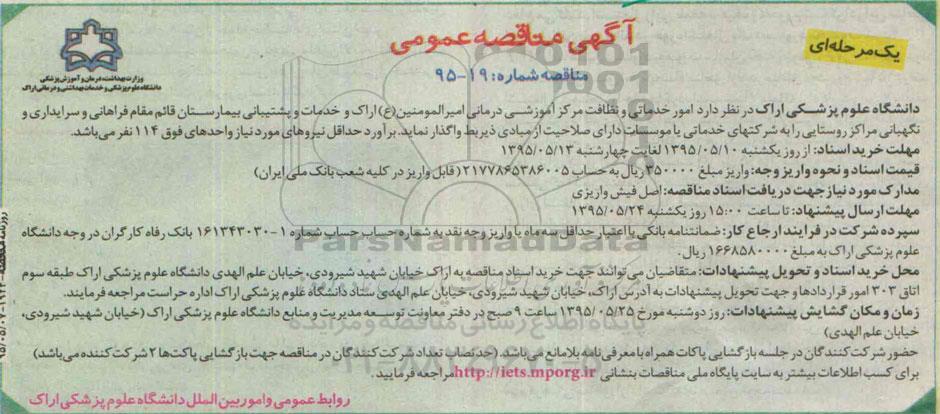 آگهی مناقصه عمومی
یک مرحله‌ای
مناقصه شماره: ۱۹-۹۵
وزارت بهداشت، درمان و آموزش پزشکی
دانشگاه علوم پزشکی و خدمات بهداشتی و درمانی اراک
دانشگاه علوم پزشکی اراک در نظر دارد امور خدماتی و نظافت مرکز آموزشی درمانی امیرالمومنین(ع) اراک و خدمات و پشتیبانی بیمارستان قائم مقام فراهانی و سرایداری و
نگهبانی مراکز روستایی را به شرکتهای خدماتی یا موسسات دارای صلاحیت از مبادی ذیربط واگذار نماید. برآورد حداقل نیروهای مورد نیاز واحدهای فوق ۱۱۴ نفر می‌باشد.
مهلت خرید اسناد: از روز یکشنبه ۱۳۹۵/۰۵/۱۰ لغایت چهارشنبه ۱۳۹۵/۰۵/۱۳
قیمت اسناد و نحوه واریز وجه: واریز مبلغ ۳۵۰۰۰۰ ریال به حساب ۲۱۷۷۸۶۵۳۸۶۰۰۵ (قابل واریز در کلیه شعب بانک ملی ایران)
مدارک مورد نیاز جهت دریافت اسناد مناقصه: اصل فیش واریزی
مهلت ارسال پیشنهاد: تا ساعت ۱۵:۰۰ روز یکشنبه ۱۳۹۵/۰۵/۲۴
سپرده شرکت در فرایند ارجاع کار: ضمانتنامه بانکی با اعتبار حداقل سه ماه یا واریز وجه نقد به شماره حساب حساب شماره ۱-۱۶۱۳۴۳۰۳۰ بانک رفاه کارگران در وجه دانشگاه
علوم پزشکی اراک به مبلغ ۱۶۶۸۵۸۰۰۰۰ ریال.
محل خرید اسناد و تحویل پیشنهادات: متقاضیان می‌توانند جهت خرید اسناد مناقصه به اراک خیابان شهید شیرودی، خیابان علم الهدی دانشگاه علوم پزشکی اراک طبقه سوم
اتاق ۳۰۳ امور قراردادها و جهت تحویل پیشنهادات به آدرس اراک، خیابان شهید شیرودی، خیابان علم الهدی ستاد دانشگاه علوم پزشکی اراک اداره حراست مراجعه فرمایند.
زمان و مکان گشایش پیشنهادات: روز دوشنبه مورخ ۱۳۹۵/۰۵/۲۵ ساعت ۹ صبح در دفتر معاونت توسعه مدیریت و منابع دانشگاه علوم پزشکی اراک (خیابان شهید شیرودی،
خیابان علم الهدی)
حضور شرکت کنندگان در جلسه بازگشایی پاکات همراه با معرفی نامه بلامانع می‌باشد. (حد نصاب تعداد شرکت کنندگان در مناقصه جهت بازگشایی پاکت‌ها ۲ شرکت کننده می‌باشد)
برای کسب اطلاعات بیشتر به سایت پایگاه ملی مناقصات بنشانی http://iets.mporg.ir مراجعه فرمایید.
روابط عمومی و امور بین الملل دانشگاه علوم پزشکی اراک
ParsNamadData
پایگاه اطلاع رسانی مناقصه و مزایده